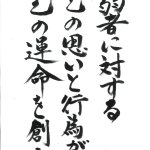 弱者に対する
己の思いと行為が
己の運命を創